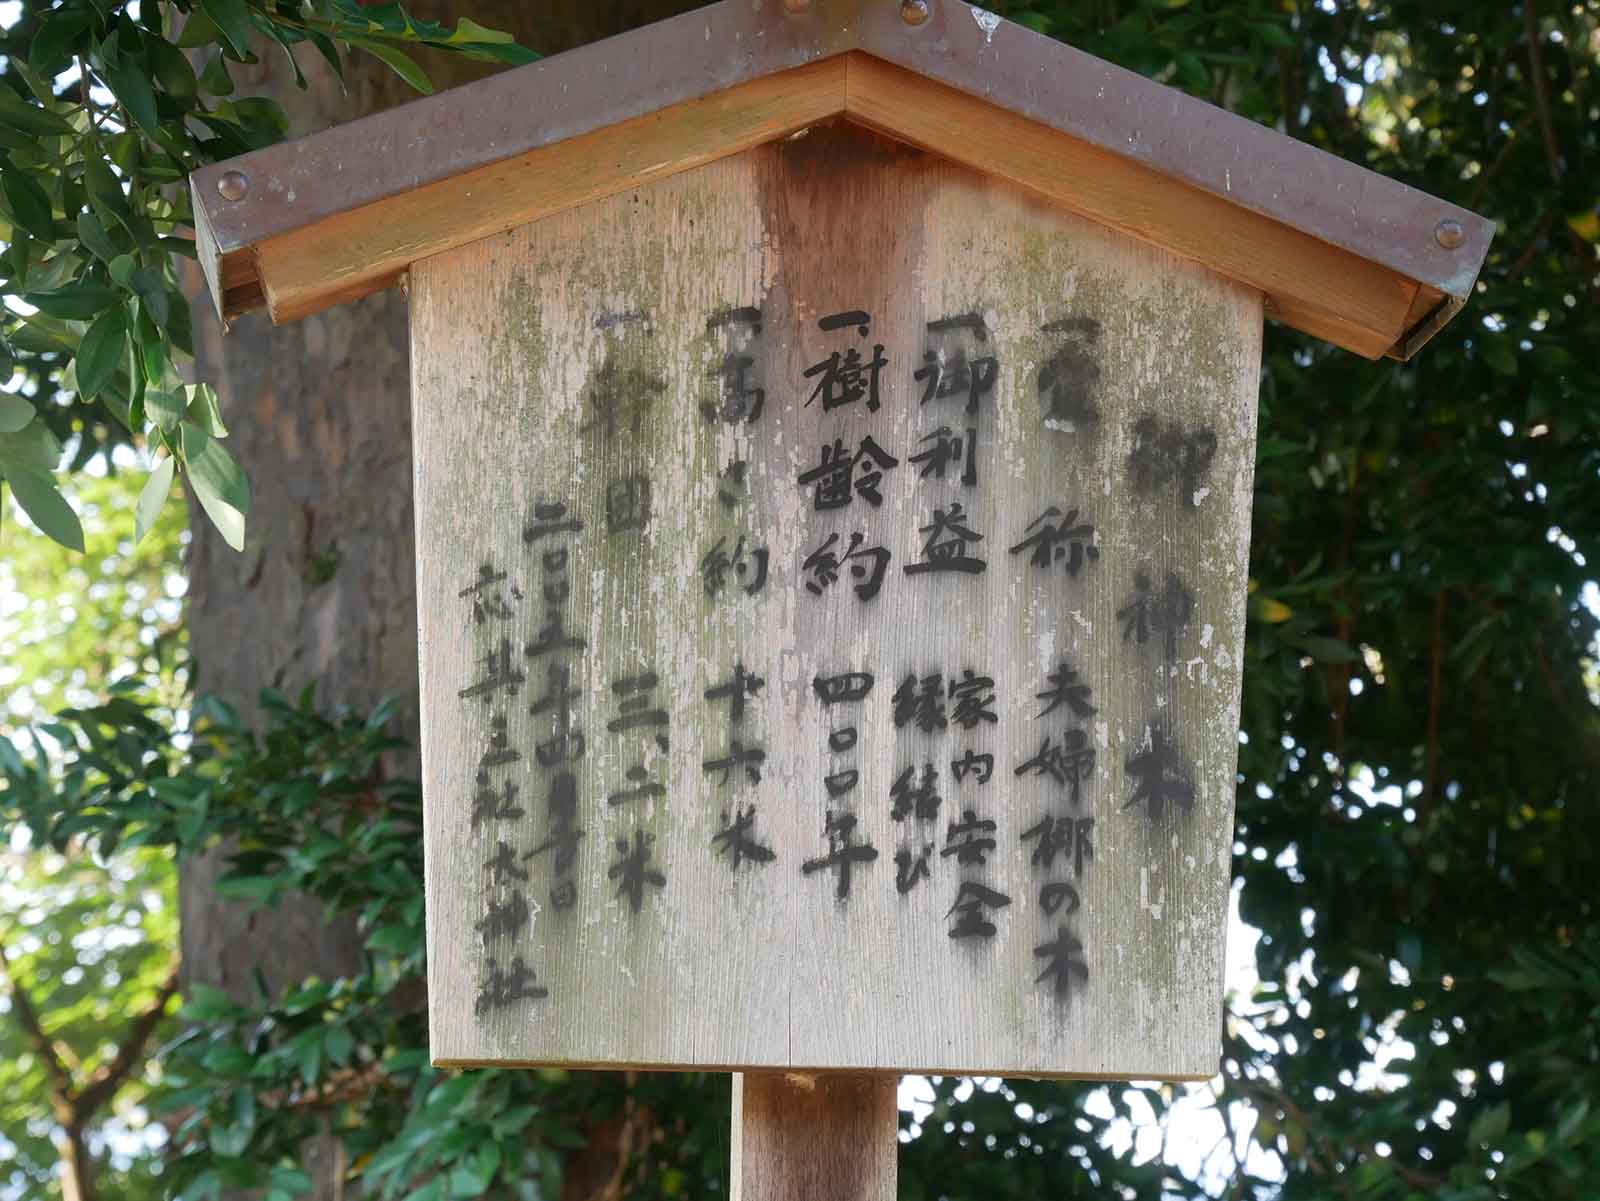 御神木
一、愛称 夫婦梛の木
一、御利益 家内安全
縁結び
一、樹齢約 四〇〇年
一、高さ約 十六米
一、幹回 三、二米
二〇〇五年四月
三社大神社